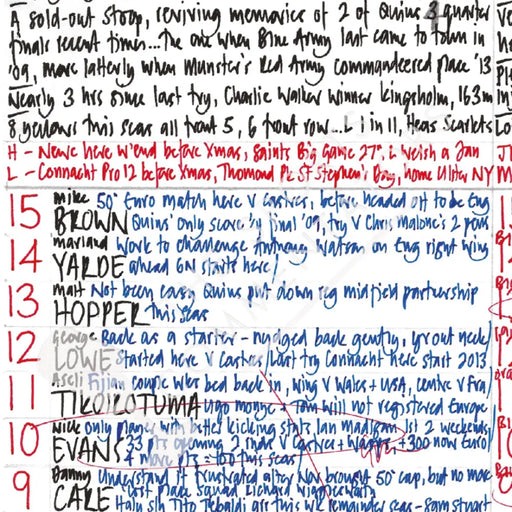 A sold-out Stoop, reviving memories of 2 of Quins 3 quarter
finals recent times...The one when Blue Army last came to town in
'09, more latterly when Munster's Red Army commandeered place '13
Nearly 3 hrs since last try, Charlie Walker winner Kingsholm, 163m
8 yellows this seas all front 5, 6 front row... L 1 in 11, Heas Scarlets
H - Newc here w'end before Xmas, Saints Big Game 27th, L Welsh 2 Jan
L - Connacht Pro 12 before Xmas, Thomond Pk St Stephen's Day, home Ulster NY
15 Mike BROWN 50th Euro match here v Castres, before headed off to be Eng
Quins' only score in final '09, try v Chris Malone's 2 pens
14 Marland YARDE Work to challenge Anthony Watson on Eng right wing
ahead 6N starts here/
13 Matt HOPPER Not been easy Quins put down reg midfield partnership
this seas
12 George LOWE Back as a starter - nudged back gently, grout neck/
Started here v Castres/last try Connacht here start 2013
11 Aseli TIKOIROTUMA Fijian couple wks bed back in, wing v Wales + USA, centre v Fra/
Ugo Monye + Tom Will not registered Europe
10 Nick EVANS only player with better kicking stats Ian Madigan 1st 2 weekends/
23 pts opening 2 inds v Castres + Wasps +300 now Euro/
4 more pts = 100 this seas
9 Danny CARE Understand if frustrated after Nov brought 50th cap, but no more
Richard Wigglesworth
Tito Tebaldi arr this wk remainder seas - Sam Stuart